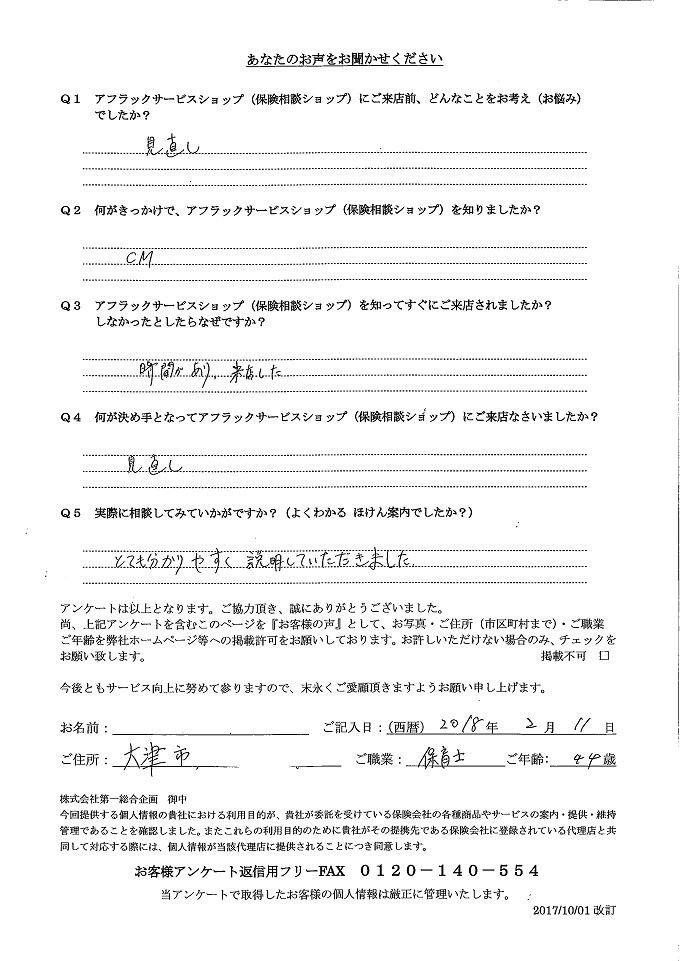 あなたのお声をお聞かせください
Q1 アフラックサービスショップ（保険相談ショップ）にご来店前、どんなことをお考え（お悩み）
でしたか？
見直し
Q2 何がきっかけで、アフラックサービスショップ（保険相談ショップ）を知りましたか？
CM
Q3 アフラックサービスショップ（保険相談ショップ）を知ってすぐにご来店されましたか？
しなかったとしたらなぜですか？
時間があり、来店した
Q4 何が決め手となってアフラックサービスショップ（保険相談ショップ）にご来店なさいましたか？
見直し
Q5 実際に相談してみていかがですか？（よくわかる ほけん案内でしたか？）
とても分かりやすく 説明していただきました
アンケートは以上となります。ご協力頂き、誠にありがとうございました。
尚、上記アンケートを含むこのページを『お客様の声』として、お写真・ご住所（市区町村まで）・ご職業
ご年齢を弊社ホームページ等への掲載許可をお願いしております。お許しいただけない場合のみ、チェックを
お願い致します。 掲載不可 □
今後ともサービス向上に努めて参りますので、末永くご愛顧頂きますようお願い申し上げます。
お名前： ご記入日：（西暦） 2018 年 2 月 11 日
ご住所： 大津市 ご職業： 保育士 ご年齢： 44 歳
株式会社第一総合企画 御中
今回提供する個人情報の貴社における利用目的が、貴社が委託を受けている保険会社の各種商品やサービスの案内・提供・維持
管理であることを確認しました。またこれらの利用目的のために貴社がその提携先である保険会社に登録されている代理店と共
同して対応する際には、個人情報が当該代理店に提供されることにつき同意します。
お客様アンケート返信用フリーFAX 0120－140－554
当アンケートで取得したお客様の個人情報は厳正に管理いたします。
2017/10/01 改訂